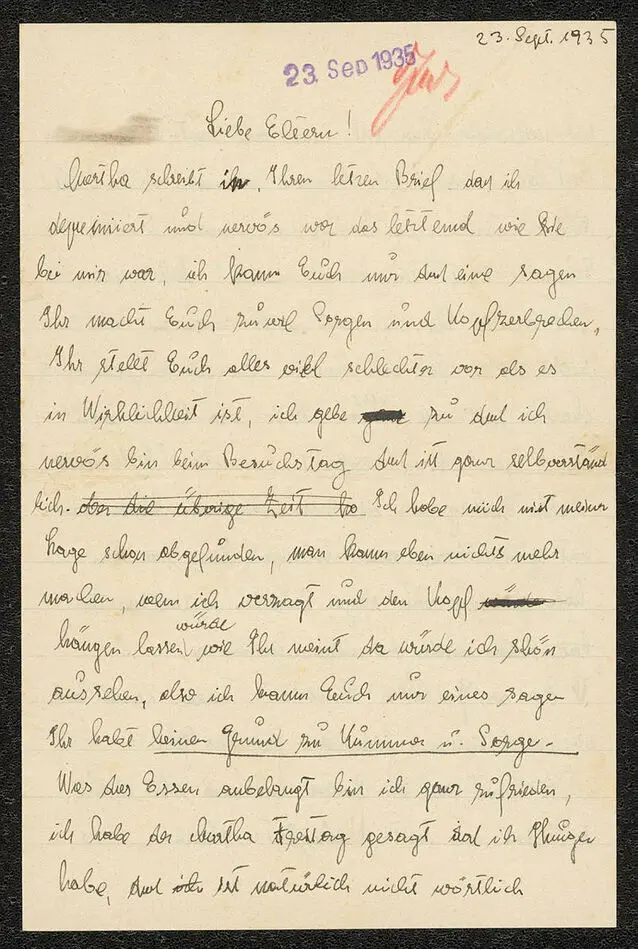 23. Sept. 1935
23. Sep 1935
Liebe Eltern!
Martha schreibt in, Ihren letzen Brief, das ich
deprimiert und nervös war das letztemal wie Sie
bei mir war, ich kann Euch nur das eine sagen
Ihr macht Euch zu viel Sorgen und Kopfzerbrechen,
Ihr stellt Euch alles viel schlechter vor als es
in Wirklichkeit ist, ich gebe zu das ich
nervös bin beim Besuchstag das ist ganz selbverständ
lich. der die übrige Zeit ha Ich habe mich mit meiner
Lage schon abgefunden, man kann eben nichts mehr
machen, wenn ich verzagt und den Kopf würde
hängen lassen würde wie Ihr meint da würde ich schön
aussehen, also ich kann Euch nur eines sagen
Ihr habt keinen Grund zu Kummer u. Sorge.
Was das Essen anbelangt bin ich ganz zufrieden,
ich habe der Martha Freitag gesagt das ich Hunger
habe, das ich ist natürlich nicht wörtlich